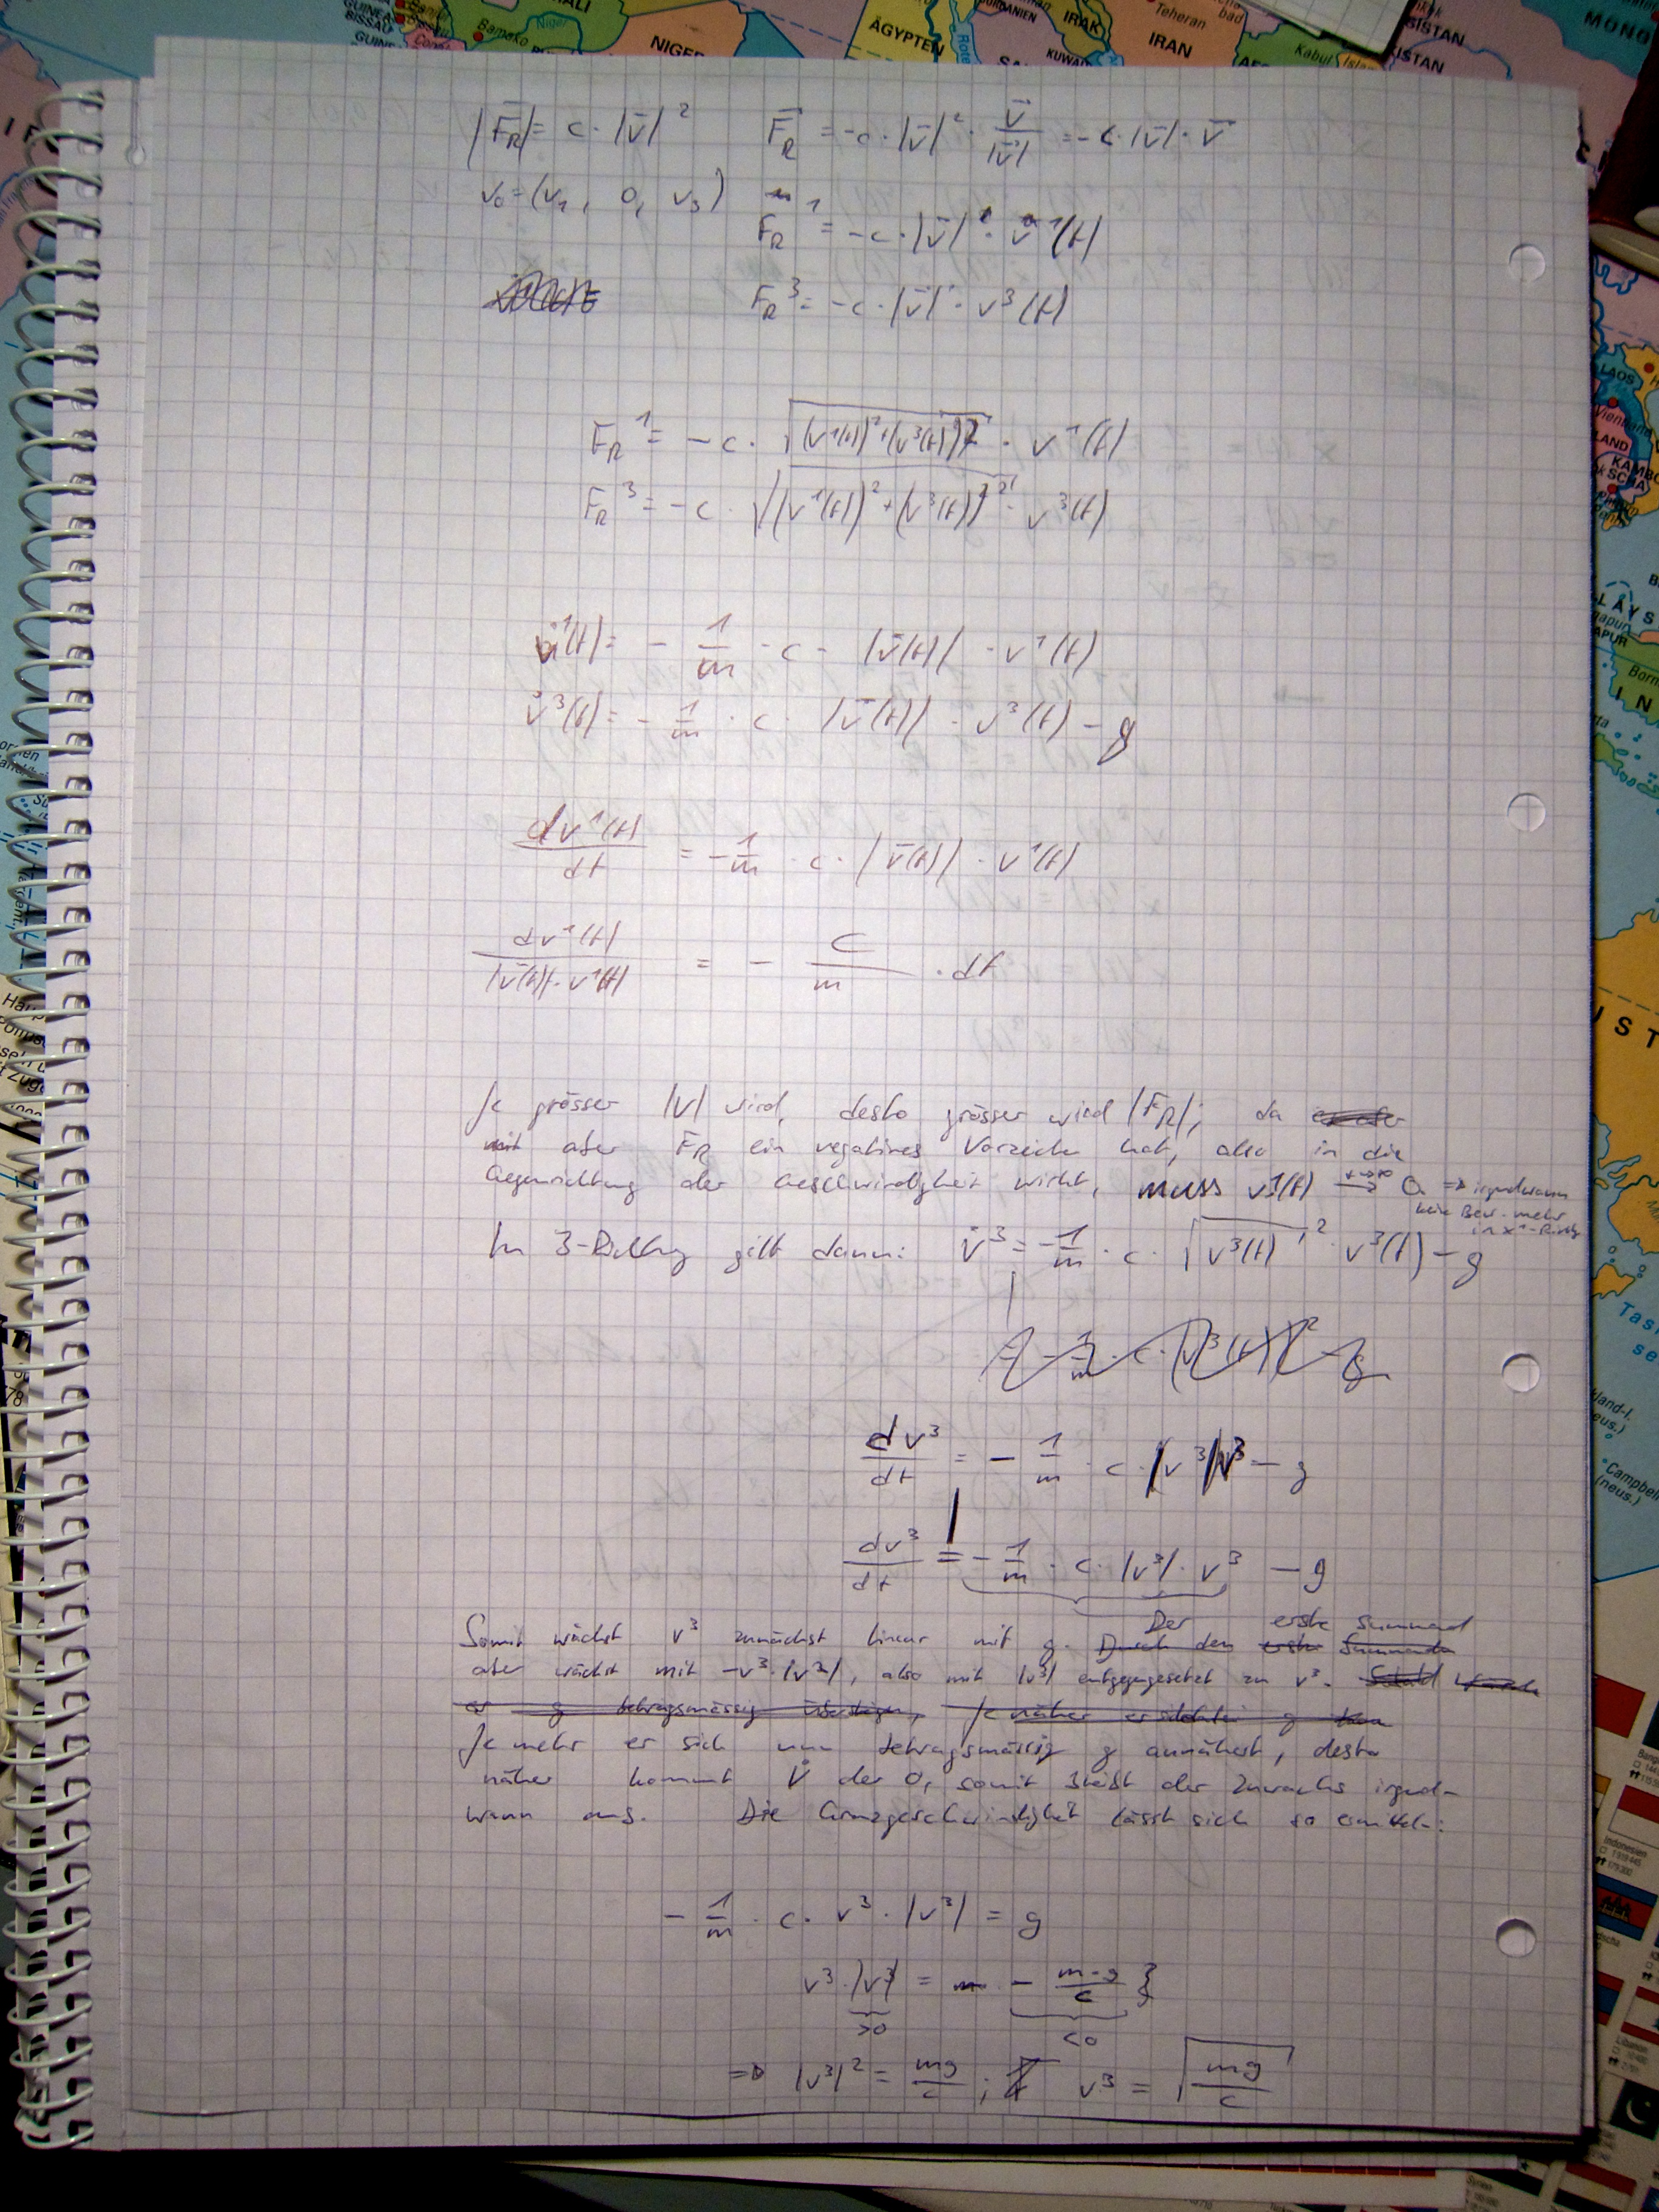 MALI
NIGER
Bamako
Niger
ÄGYPTEN
IRAK
Teheran
IRAN
KUWAIT
Kabul
MONGO
|F_R| = c · |v̄|²    F̄_R = -c · |v̄|² · v̄/|v̄| = -c · |v̄| · v̄
v₀ = (v₁, 0, v₃)
F_R¹ = -c · |v̄| · v¹(t)
F_R³ = -c · |v̄| · v³(t)
F_R¹ = -c · √((v¹(t))² + (v³(t))²) · v¹(t)
F_R³ = -c · √((v¹(t))² + (v³(t))²) · v³(t)
v̇¹(t) = - 1/m · c · |v̄(t)| · v¹(t)
v̇³(t) = - 1/m · c · |v̄(t)| · v³(t) - g
dv¹(t)/dt = - 1/m · c · |v̄(t)| · v¹(t)
dv¹(t)/(|v̄(t)| · v¹(t)) = - c/m · dt
Je grösser |v| wird, desto grösser wird |F_R|; da
aber F_R ein negatives Vorzeichen hat, also in die
Gegenrichtung der Geschwindigkeit wirkt, muss v¹(t) → 0 ⇒ irgendwann
keine Bew. mehr
in x¹-Richtg
In 3-Richtung gilt dann: v̇³ = - 1/m · c · √(v³(t)²) · v³(t) - g
dv³/dt = - 1/m · c · |v³| v³ - g
dv³/dt = - 1/m · c · |v³| · v³ - g
Somit wächst v³ zunächst linear mit g. Der erste Summand
aber wächst mit -v³ · |v³|, also mit |v³| entgegengesetzt zu v³.
Je mehr er sich nun betragsmässig g annähert, desto
näher kommt v̇ der 0, somit bleibt der Zuwachs irgend-
wann aus. Die Grenzgeschwindigkeit lässt sich so ermitteln:
- 1/m · c · v³ · |v³| = g
v³ · |v³| = - m·g/c
>0    <0
⇒ |v³|² = mg/c ; v³ = √(mg/c)
LAOS
Campbell
(neus.)
Indonesien